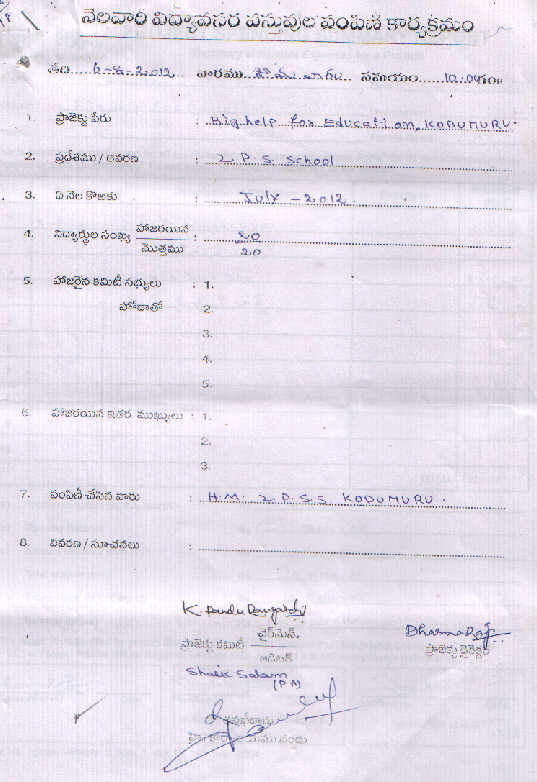 నెలవారీ విద్యావసర వస్తువుల పంపిణీ కార్యక్రమం
తేది 6-8-2012 వారము సోమవారం సమయం 10.00గం॥
1. ప్రాజెక్టు పేరు : High help for Education, KODUMURU.
2. ప్రదేశము / ఆవరణ : 2 P. S. School
3. ఏ నెల కొఱకు : July - 2012
4. విద్యార్థుల సంఖ్య హాజరయిన : 20
మొత్తము 20
5. హాజరైన కమిటీ సభ్యులు : 1.
హోదాతో 2.
3.
4.
5.
6. హాజరయిన ఇతర ముఖ్యులు : 1.
2.
3.
7. పంపిణీ చేసిన వారు : H.M. 2 P. S. S KODUMURU.
8. వివరణ / సూచనలు :
ఛైర్మెన్,
ప్రాజెక్టు కమిటీ
ప్రాజెక్టు డైరెక్టర్
Shaik Salam
(PM)